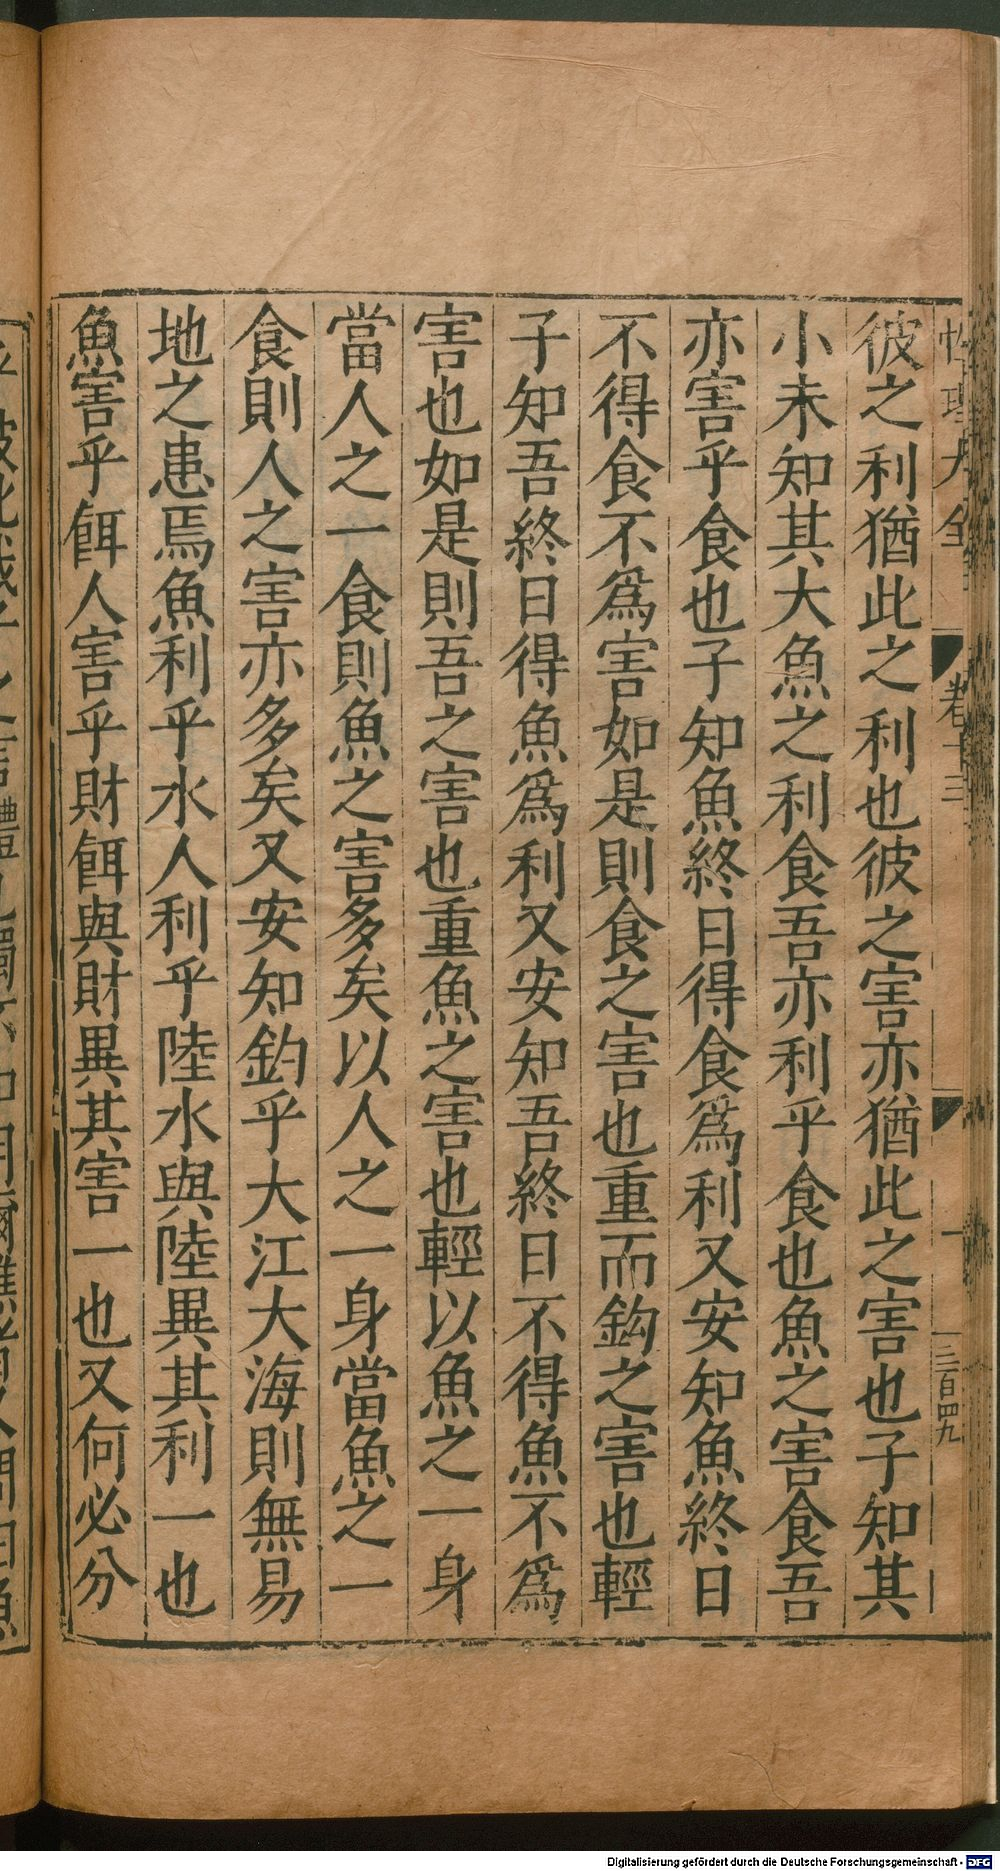 性理大全書
卷十三
一
三百四九
彼之利猶此之利也彼之害亦猶此之害也子知其
小未知其大魚之利食吾亦利乎食也魚之害食吾
亦害乎食也子知魚終日得食爲利又安知魚終日
不得食不爲害如是則食之害也重而鈎之害也輕
子知吾終日得魚爲利又安知吾終日不得魚不爲
害也如是則吾之害也重魚之害也輕以魚之一身
當人之一食則魚之害多矣以人之一身當魚之一
食則人之害亦多矣又安知釣乎大江大海則無易
地之患焉魚利乎水人利乎陸水與陸異其利一也
魚害乎餌人害乎財餌與財異其害一也又何必分
Digitalisierung gefördert durch die Deutsche Forschungsgemeinschaft - DFG